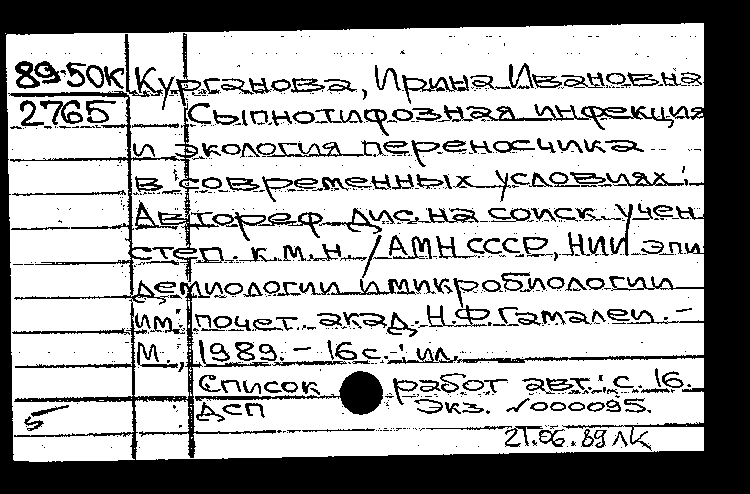 89-50к Курганова, Ирина Ивановна
2765 Сыпнотифозная инфекция
и экология переносчика
в современных условиях:
Автореф. дис. на соиск. учен.
степ. к.м.н. / АМН СССР, НИИ эпи
демиологии и микробиологии
им. почет. акад. Н.Ф. Гамалеи. –
М., 1989. – 16 с.: ил.
Список работ авт.: с. 16.
ДСП Экз. №000095.
5
21.06.89 ЛК